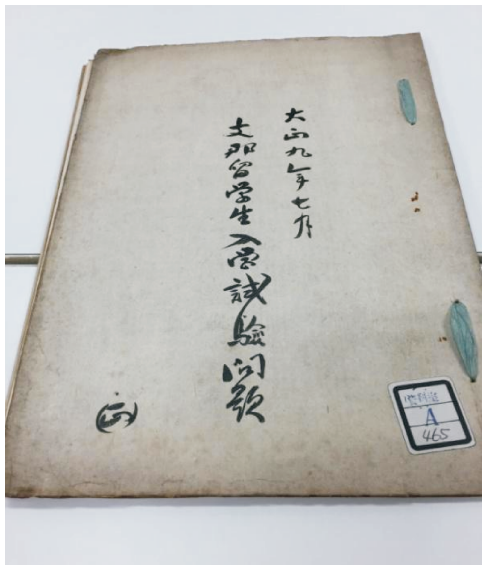 大正九年七月
支那留学生入学試驗問題
(正)
資料室
A
465